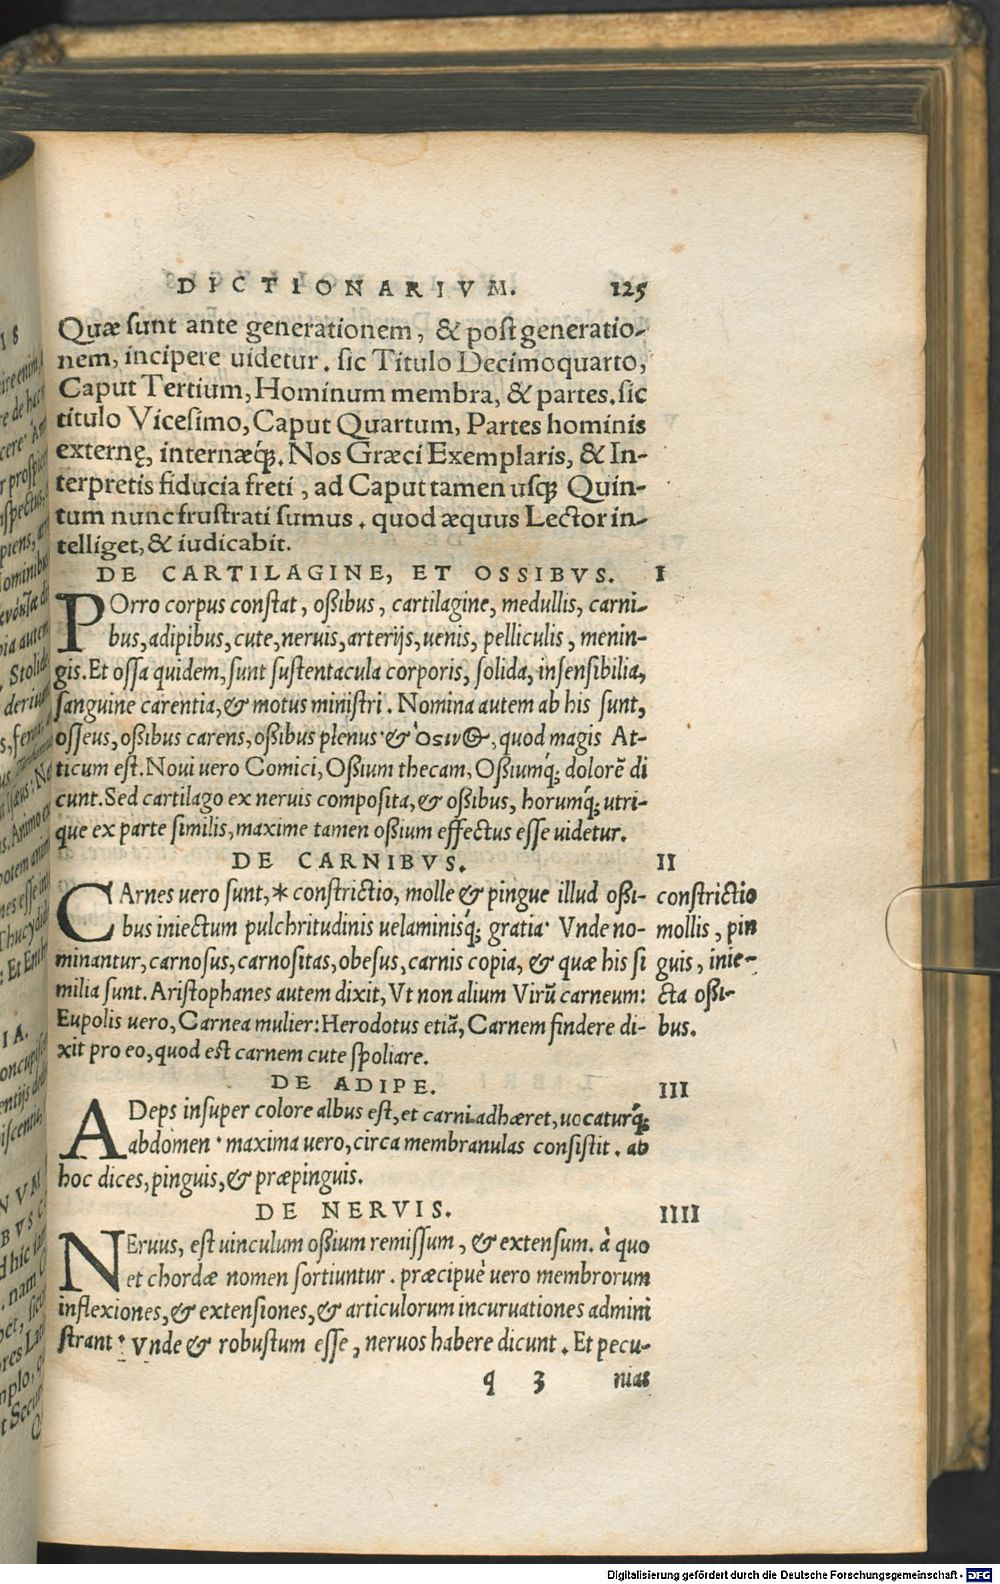 DICTIONARIVM. 125
Quæ sunt ante generationem, & post generatio-
nem, incipere uidetur. sic Titulo Decimoquarto,
Caput Tertium, Hominum membra, & partes. sic
titulo Vicesimo, Caput Quartum, Partes hominis
externę, internæq́;. Nos Græci Exemplaris, & In-
terpretis fiducia freti, ad Caput tamen usq; Quin-
tum nunc frustrati sumus. quod æquus Lector in-
telliget, & iudicabit.
DE CARTILAGINE, ET OSSIBVS. I
POrro corpus constat, oßibus, cartilagine, medullis, carni-
bus, adipibus, cute, neruis, arterijs, uenis, pelliculis, menin-
gis. Et ossa quidem, sunt sustentacula corporis, solida, insensibilia,
sanguine carentia, & motus ministri. Nomina autem ab his sunt,
osseus, oßibus carens, oßibus plenus & ὄσινος, quod magis At-
ticum est. Noui uero Comici, Oßium thecam, Oßiumq́; dolorẽ di
cunt. Sed cartilago ex neruis composita, & oßibus, horumq́; utri-
que ex parte similis, maxime tamen oßium effectus esse uidetur.
DE CARNIBVS. II
CArnes uero sunt, * constrictio, molle & pingue illud oßi-
bus iniectum pulchritudinis uelaminisq́; gratia. Vnde no-
minantur, carnosus, carnositas, obesus, carnis copia, & quæ his si
milia sunt. Aristophanes autem dixit, Vt non alium Virũ carneum:
Eupolis uero, Carnea mulier: Herodotus etiã, Carnem findere di-
xit pro eo, quod est carnem cute spoliare.
constrictio
mollis, pin
guis, inie-
cta oßi-
bus.
DE ADIPE. III
ADeps insuper colore albus est, et carni adhæret, uocaturq́;
abdomen. maxima uero, circa membranulas consistit. ab
hoc dices, pinguis, & præpinguis.
DE NERVIS. IIII
NEruus, est uinculum oßium remissum, & extensum. à quo
et chordæ nomen sortiuntur. præcipuè uero membrorum
inflexiones, & extensiones, & articulorum incuruationes admini
strant. Vnde & robustum esse, neruos habere dicunt. Et pecu-
q 3 nias
Digitalisierung gefördert durch die Deutsche Forschungsgemeinschaft - DFG